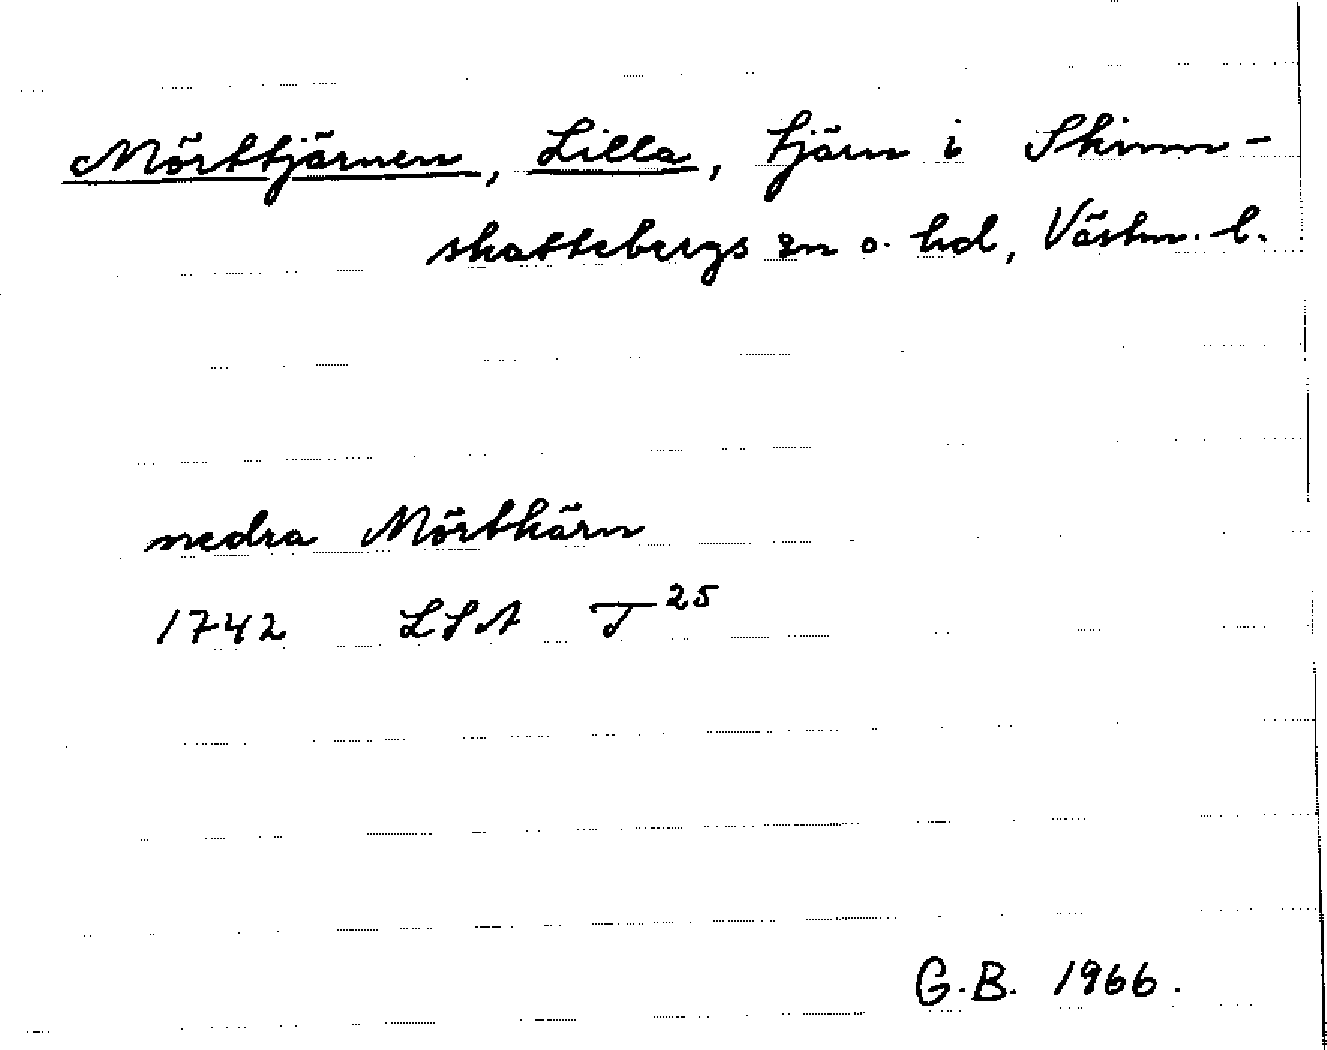 Mörttjärnen, Lilla, tjärn i Skinn-
skattebergs sn o. hd, Västm. l.
nedra Mörtkärn
1742 LSA T 25
G.B. 1966.